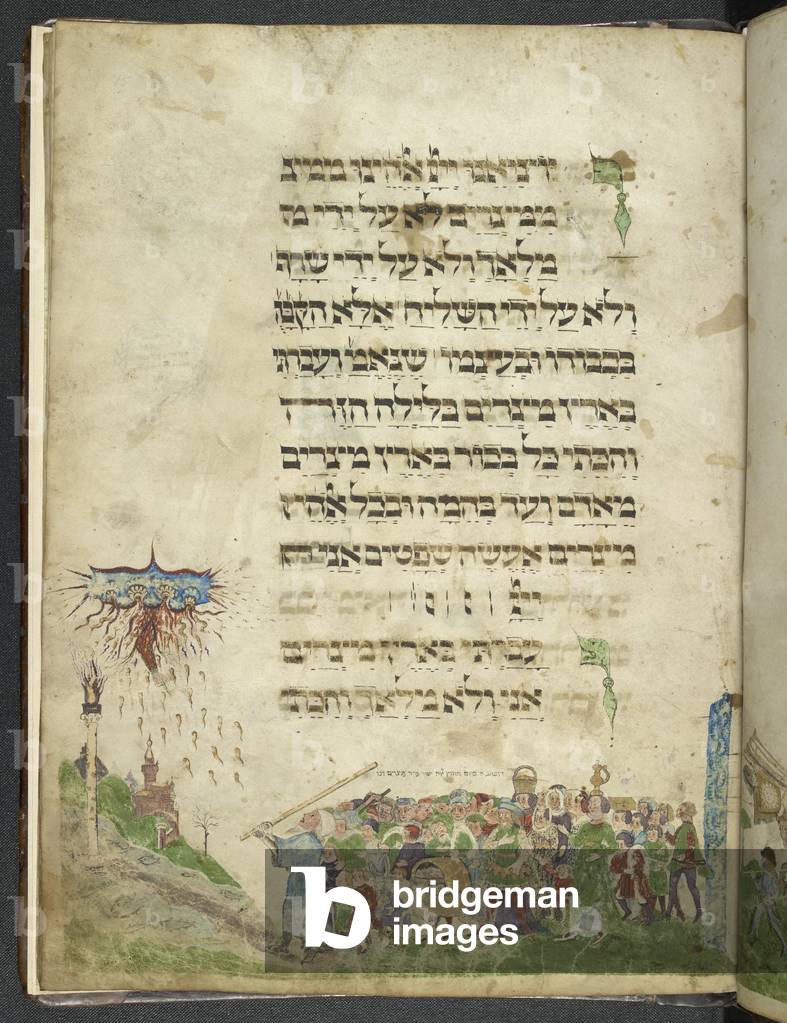 ויוציאנו ייי אלהינו ממיצ
ממיצרים לא על ידי מ
מלאך ולא על ידי שרף
ולא על ידי השליח אלא הקבה
בכבודו ובעצמו שנאמ ועברתי
בארץ מיצרים בלילה הזה
והכתי כל בכור בארץ מיצרים
מאדם ועד בהמה ובכל אלהי
מיצרים אעשה שפטים אני
ייי
עברתי בארץ מיצרים
אני ולא מלאך והכתי
bridgeman
images